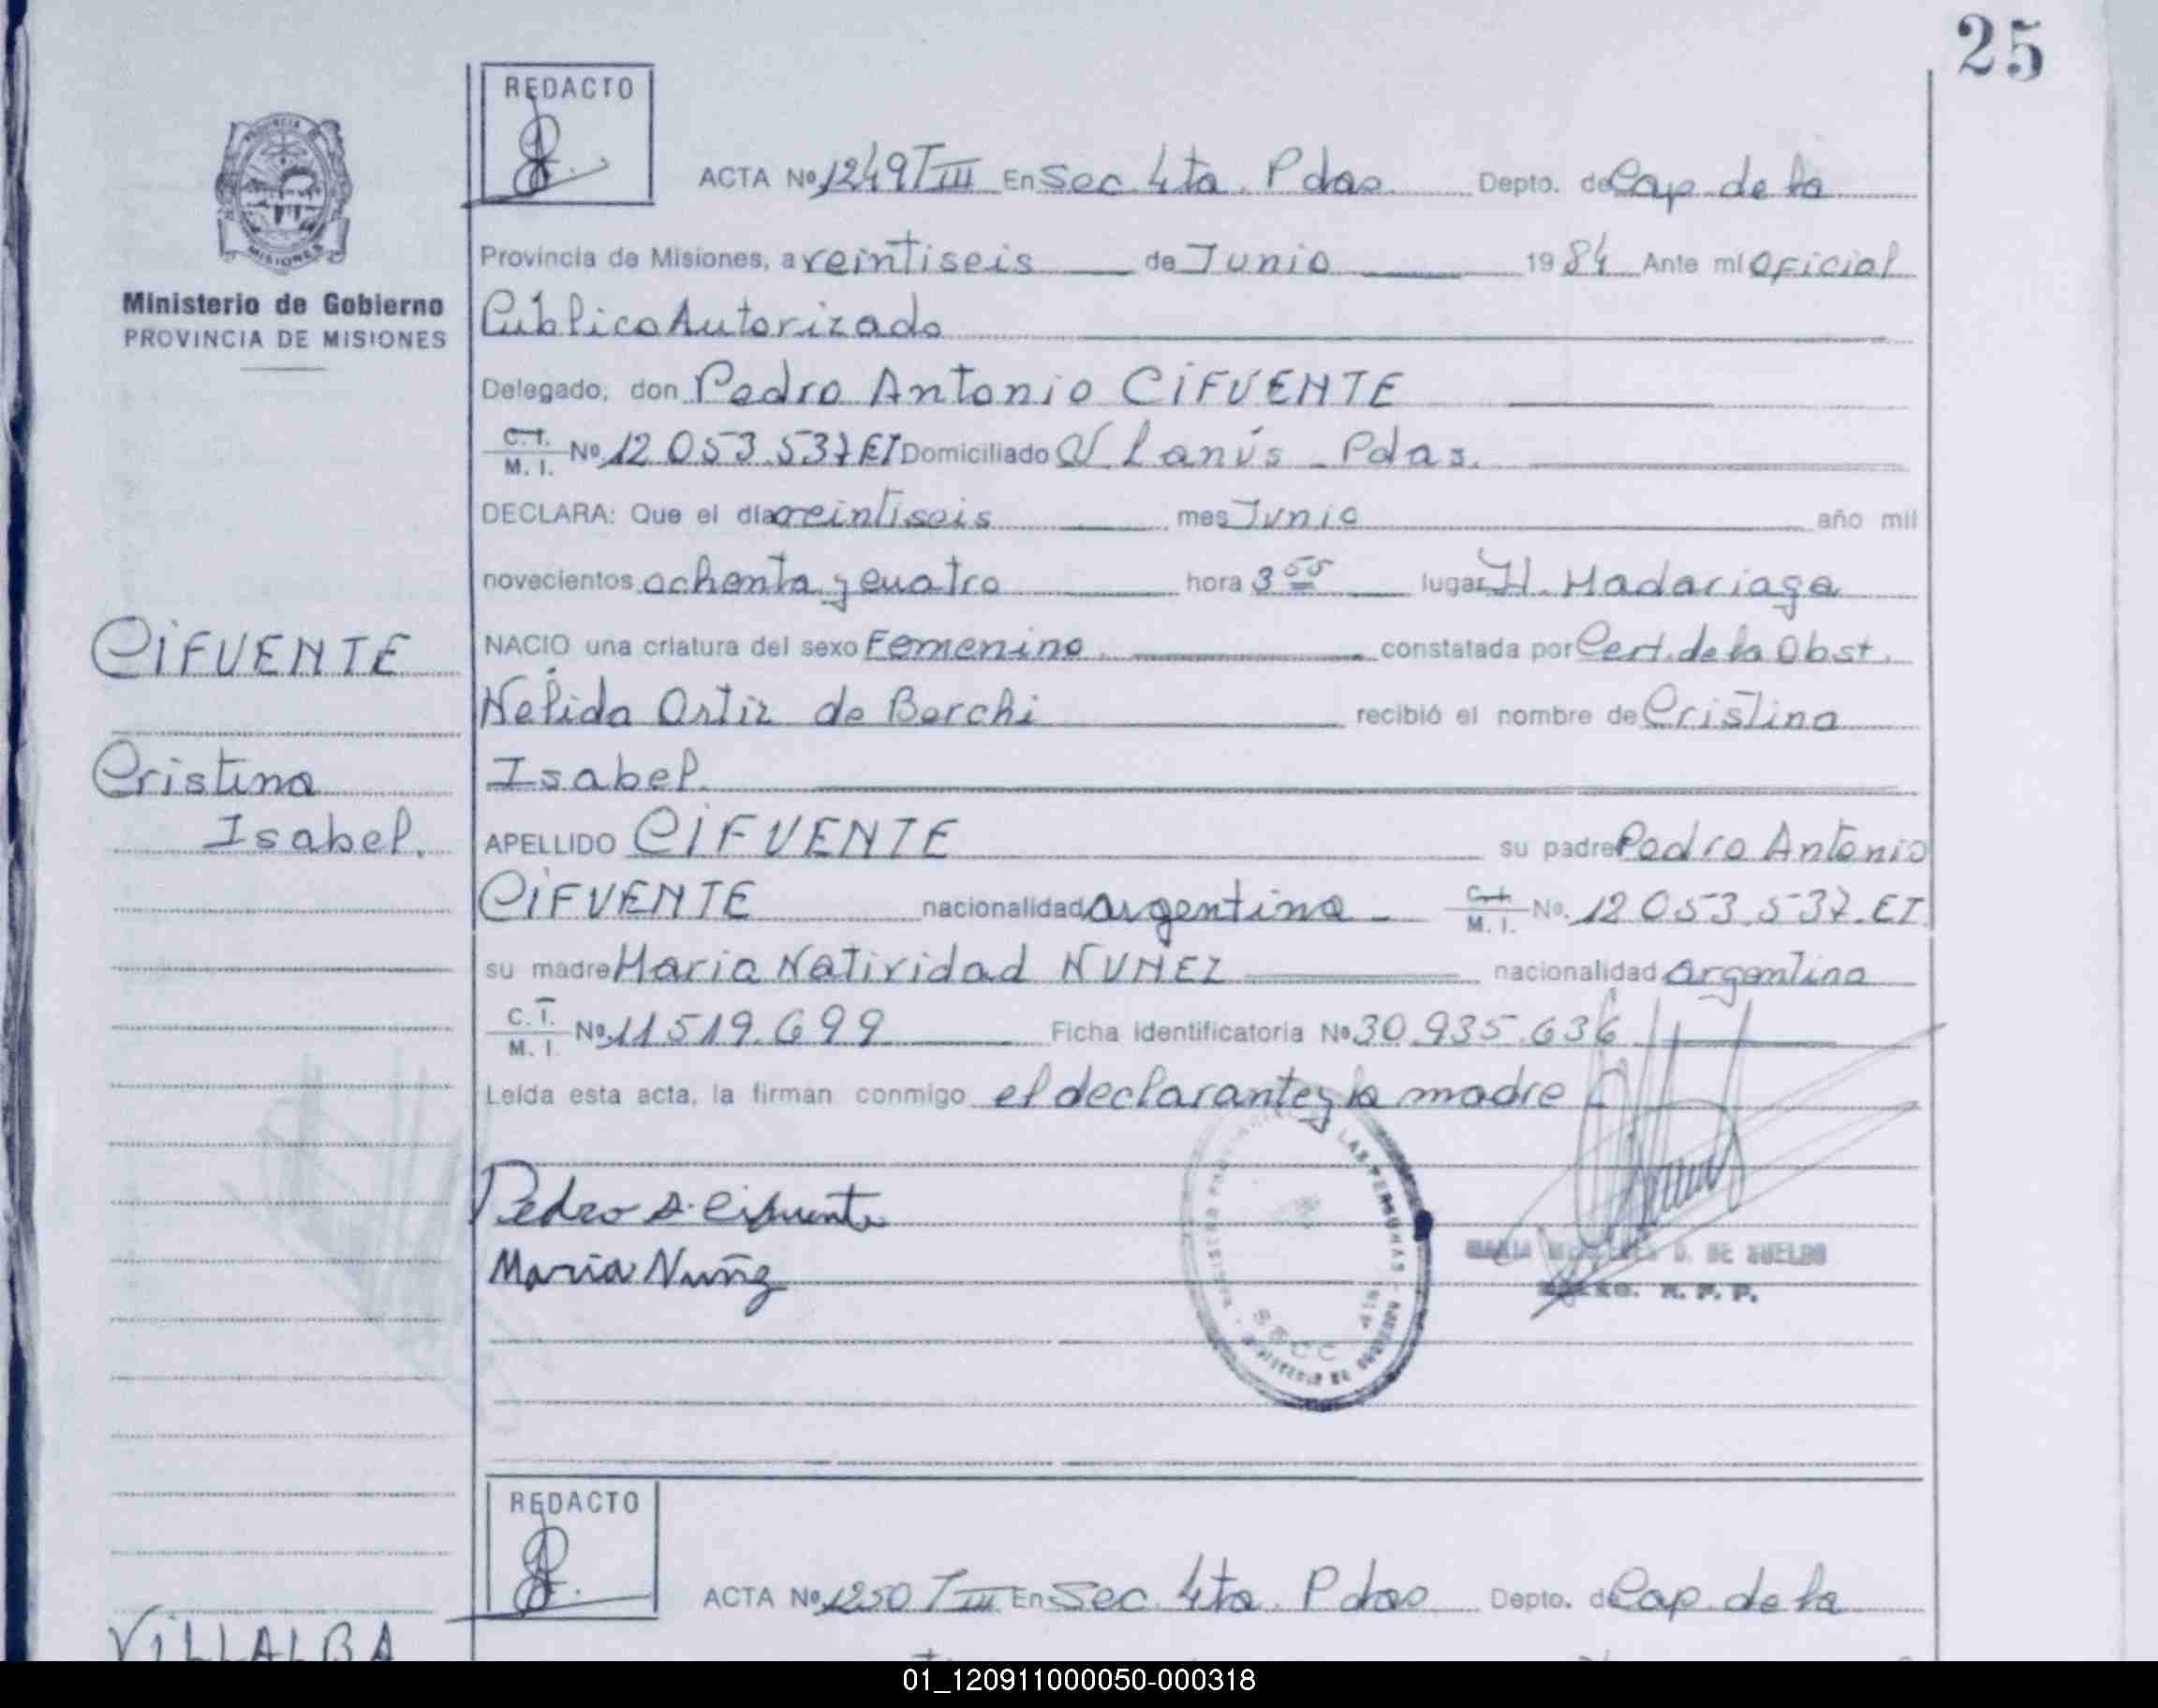 25
REDACTO
ACTA Nº 1249 T III En Sec. 4ta. Pdas. Depto. de Cap. de la
Provincia de Misiones, a veintiseis de Junio 19 84 Ante mí Oficial
Ministerio de Gobierno
PROVINCIA DE MISIONES
Público Autorizado
Delegado, don Pedro Antonio CIFUENTE
C.I. M. I. Nº 12.053.537 EI Domiciliado Vª Lanús - Pdas.
DECLARA: Que el día veintiseis mes Junio año mil
novecientos ochenta y cuatro hora 3 55 lugar H. Madariaga
CIFUENTE
NACIO una criatura del sexo Femenino. constatada por Cert. de la Obst.
Nélida Ortiz de Berchi recibió el nombre de Cristina
Cristina
Isabel.
Isabel.
APELLIDO CIFUENTE su padre Pedro Antonio
CIFUENTE nacionalidad argentina - C.I. M. I. Nº. 12.053.537.EI
su madre Maria Natividad NUNEZ nacionalidad argentina
C. I. M. I. Nº 11.519.699 Ficha identificatoria Nº 30.935.636
Leída esta acta, la firman conmigo el declarante y la madre
Pedro A. Cifuente
Maria Nuñez
D. DE SUELDO
R. P. P.
REDACTO
ACTA Nº 1250 T III En Sec. 4ta. Pdas Depto. de Cap. de la
VILLALBA
01_120911000050-000318